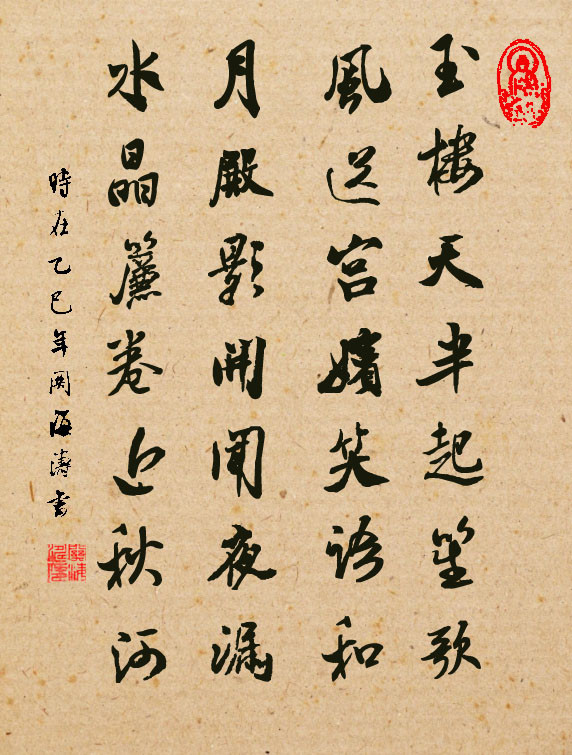 玉樓天半起笙歌
風送宮嬪笑語和
月殿影開聞夜漏
水晶簾卷近秋河
時在乙巳年関海濤書